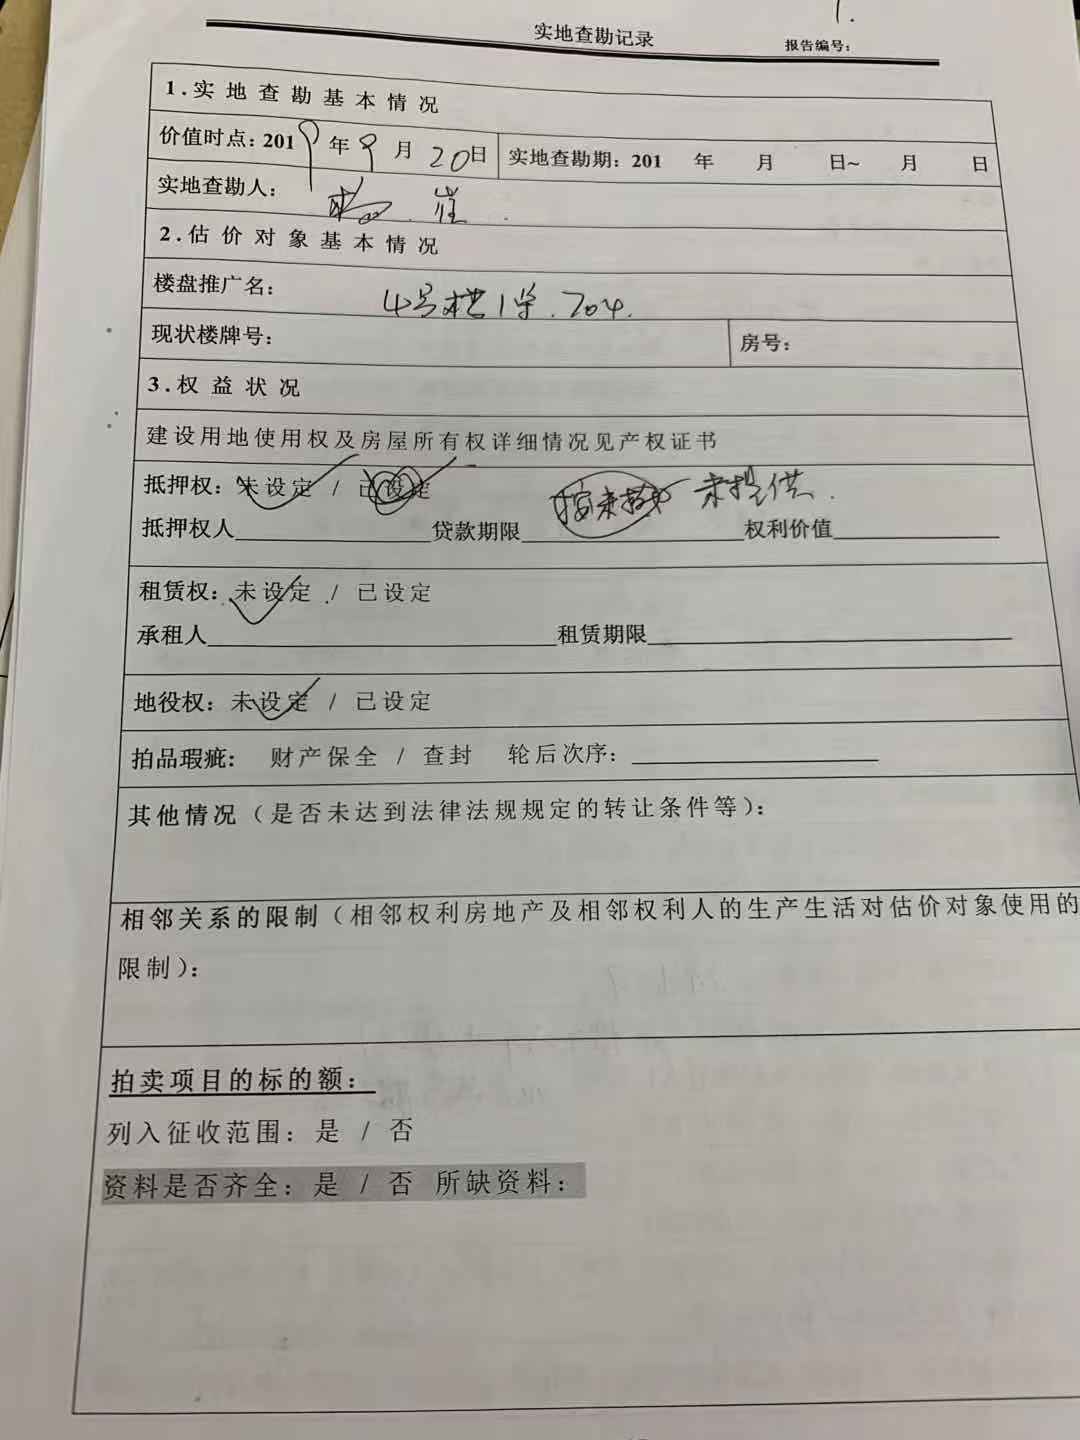 1.
实地查勘记录
报告编号：
1.实地查勘基本情况
价值时点：2019年9月20日 实地查勘期：201 年 月 日~ 月 日
实地查勘人： 崔
2.估价对象基本情况
楼盘推广名： 4号楼1单.704.
现状楼牌号： 房号：
3.权益状况
建设用地使用权及房屋所有权详细情况见产权证书
抵押权：未设定 / 已设定 未提供.
抵押权人 贷款期限 权利价值
租赁权：未设定 / 已设定
承租人 租赁期限
地役权：未设定 / 已设定
拍品瑕疵： 财产保全 / 查封 轮后次序：
其他情况（是否未达到法律法规规定的转让条件等）：
相邻关系的限制（相邻权利房地产及相邻权利人的生产生活对估价对象使用的
限制）：
拍卖项目的标的额：
列入征收范围：是 / 否
资料是否齐全：是 / 否 所缺资料：